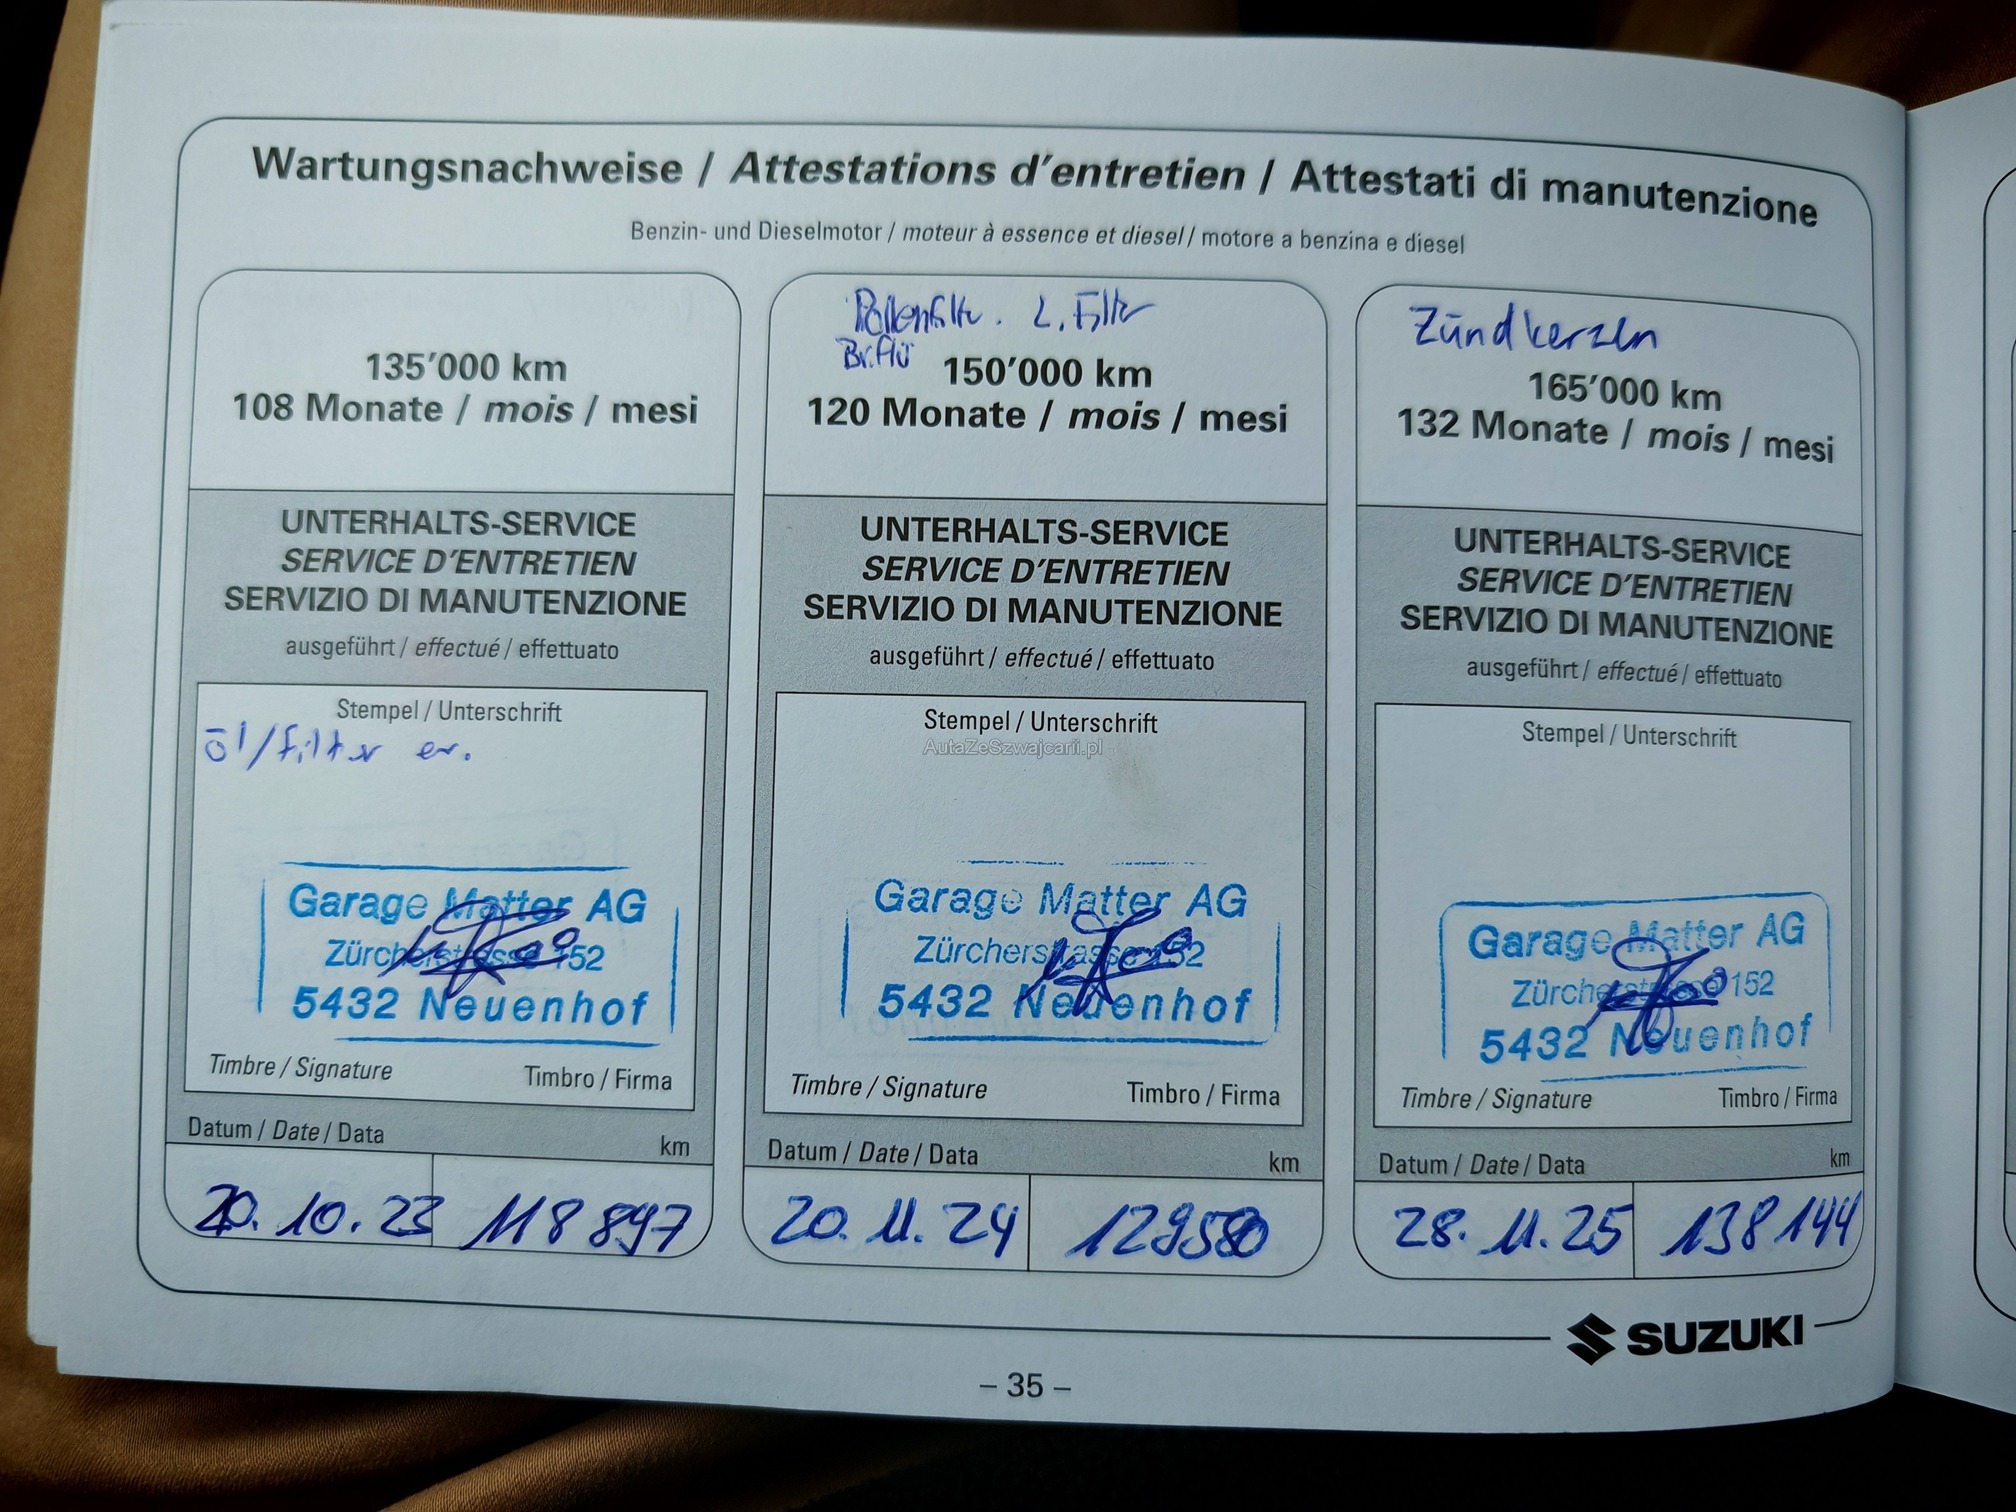 Wartungsnachweise / Attestations d'entretien / Attestati di manutenzione
Benzin- und Dieselmotor / moteur à essence et diesel / motore a benzina e diesel
135'000 km
108 Monate / mois / mesi
UNTERHALTS-SERVICE
SERVICE D'ENTRETIEN
SERVIZIO DI MANUTENZIONE
ausgeführt / effectué / effettuato
Stempel / Unterschrift
Öl/Filter er.
Garage Matter AG
Zürcherstrasse 152
5432 Neuenhof
Timbre / Signature Timbro / Firma
Datum / Date / Data km
20. 10. 23 118 897
Pollenfilter. L. Filter
Br.flü
150'000 km
120 Monate / mois / mesi
UNTERHALTS-SERVICE
SERVICE D'ENTRETIEN
SERVIZIO DI MANUTENZIONE
ausgeführt / effectué / effettuato
Stempel / Unterschrift
AutaZeSzwajcarii.pl
Garage Matter AG
Zürcherstrasse 152
5432 Neuenhof
Timbre / Signature Timbro / Firma
Datum / Date / Data km
20. 11. 24 129580
Zündkerzen
165'000 km
132 Monate / mois / mesi
UNTERHALTS-SERVICE
SERVICE D'ENTRETIEN
SERVIZIO DI MANUTENZIONE
ausgeführt / effectué / effettuato
Stempel / Unterschrift
Garage Matter AG
Zürcherstrasse 152
5432 Neuenhof
Timbre / Signature Timbro / Firma
Datum / Date / Data km
28. 11. 25 138 144
SUZUKI
– 35 –